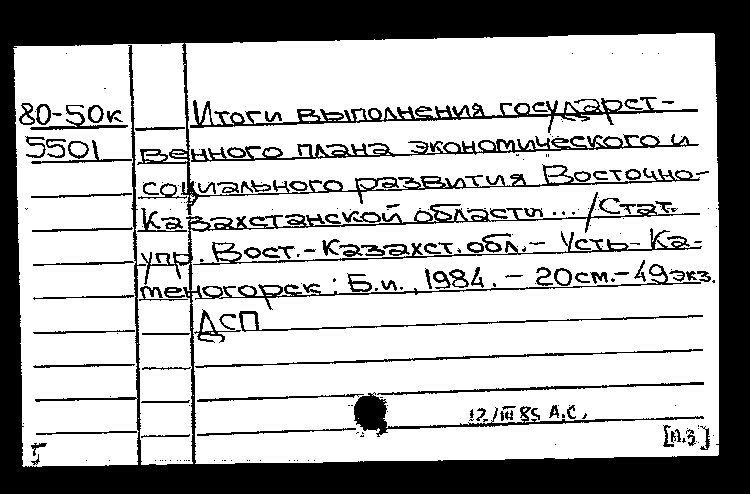 80-50к Итоги выполнения государст-
5501 венного плана экономического и
социального развития Восточно-
Казахстанской области... / Стат.
упр. Вост.-Казахст. обл. - Усть-Ка-
меногорск : Б.и., 1984. - 20см. - 49экз.
ДСП
12/III 85 А.С.
[М.З]
5